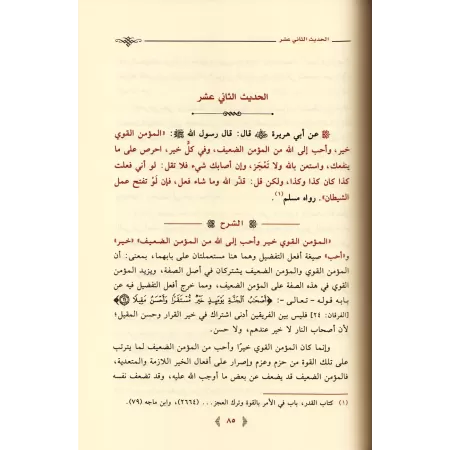 الحديث الثاني عشر
الحديث الثاني عشر
عن أبي هريرة ﷺ قال: قال رسول الله ﷺ: «المؤمن القوي
خير، وأحب إلى الله من المؤمن الضعيف، وفي كلٍّ خير، احرص على ما
ينفعك، واستعن بالله ولا تَعْجَز، وإن أصابك شيء فلا تقل: لو أني فعلت
كذا كان كذا وكذا، ولكن قل: قدّر الله وما شاء فعل، فإن لَوْ تفتح عمل
الشيطان». رواه مسلم(١).
الشرح
«المؤمن القوي خير وأحب إلى الله من المؤمن الضعيف» «خير»
و«أحب» صيغة أفعل التفضيل وهما هنا مستعملتان على بابهما، بمعنى: أن
المؤمن القوي والمؤمن الضعيف يشتركان في أصل الصفة، ويزيد المؤمن
القوي في هذه الصفة على الضعيف، ومما خرج أفعل التفضيل فيه عن
بابه قوله ـ تعالى ـ: ﴿أَصْحَابُ الْجَنَّةِ يَوْمَئِذٍ خَيْرٌ مُسْتَقَرًّا وَأَحْسَنُ مَقِيلًا﴾
[الفرقان: ٢٤] فليس بين الفريقين أدنى اشتراك في خير القرار وحسن المقيل؛
لأن أصحاب النار لا خير عندهم، ولا حسن.
وإنما كان المؤمن القوي خيرًا وأحب من المؤمن الضعيف لما يترتب
على تلك القوة من حزم وعزم وإصرار على أفعال الخير اللازمة والمتعدية،
فالمؤمن الضعيف قد يضعف عن بعض ما أوجب الله عليه، وقد تضعف نفسه
(١) كتاب القدر، باب في الأمر بالقوة وترك العجز... (٢٦٦٤)، وابن ماجه (٧٩).
٨٥